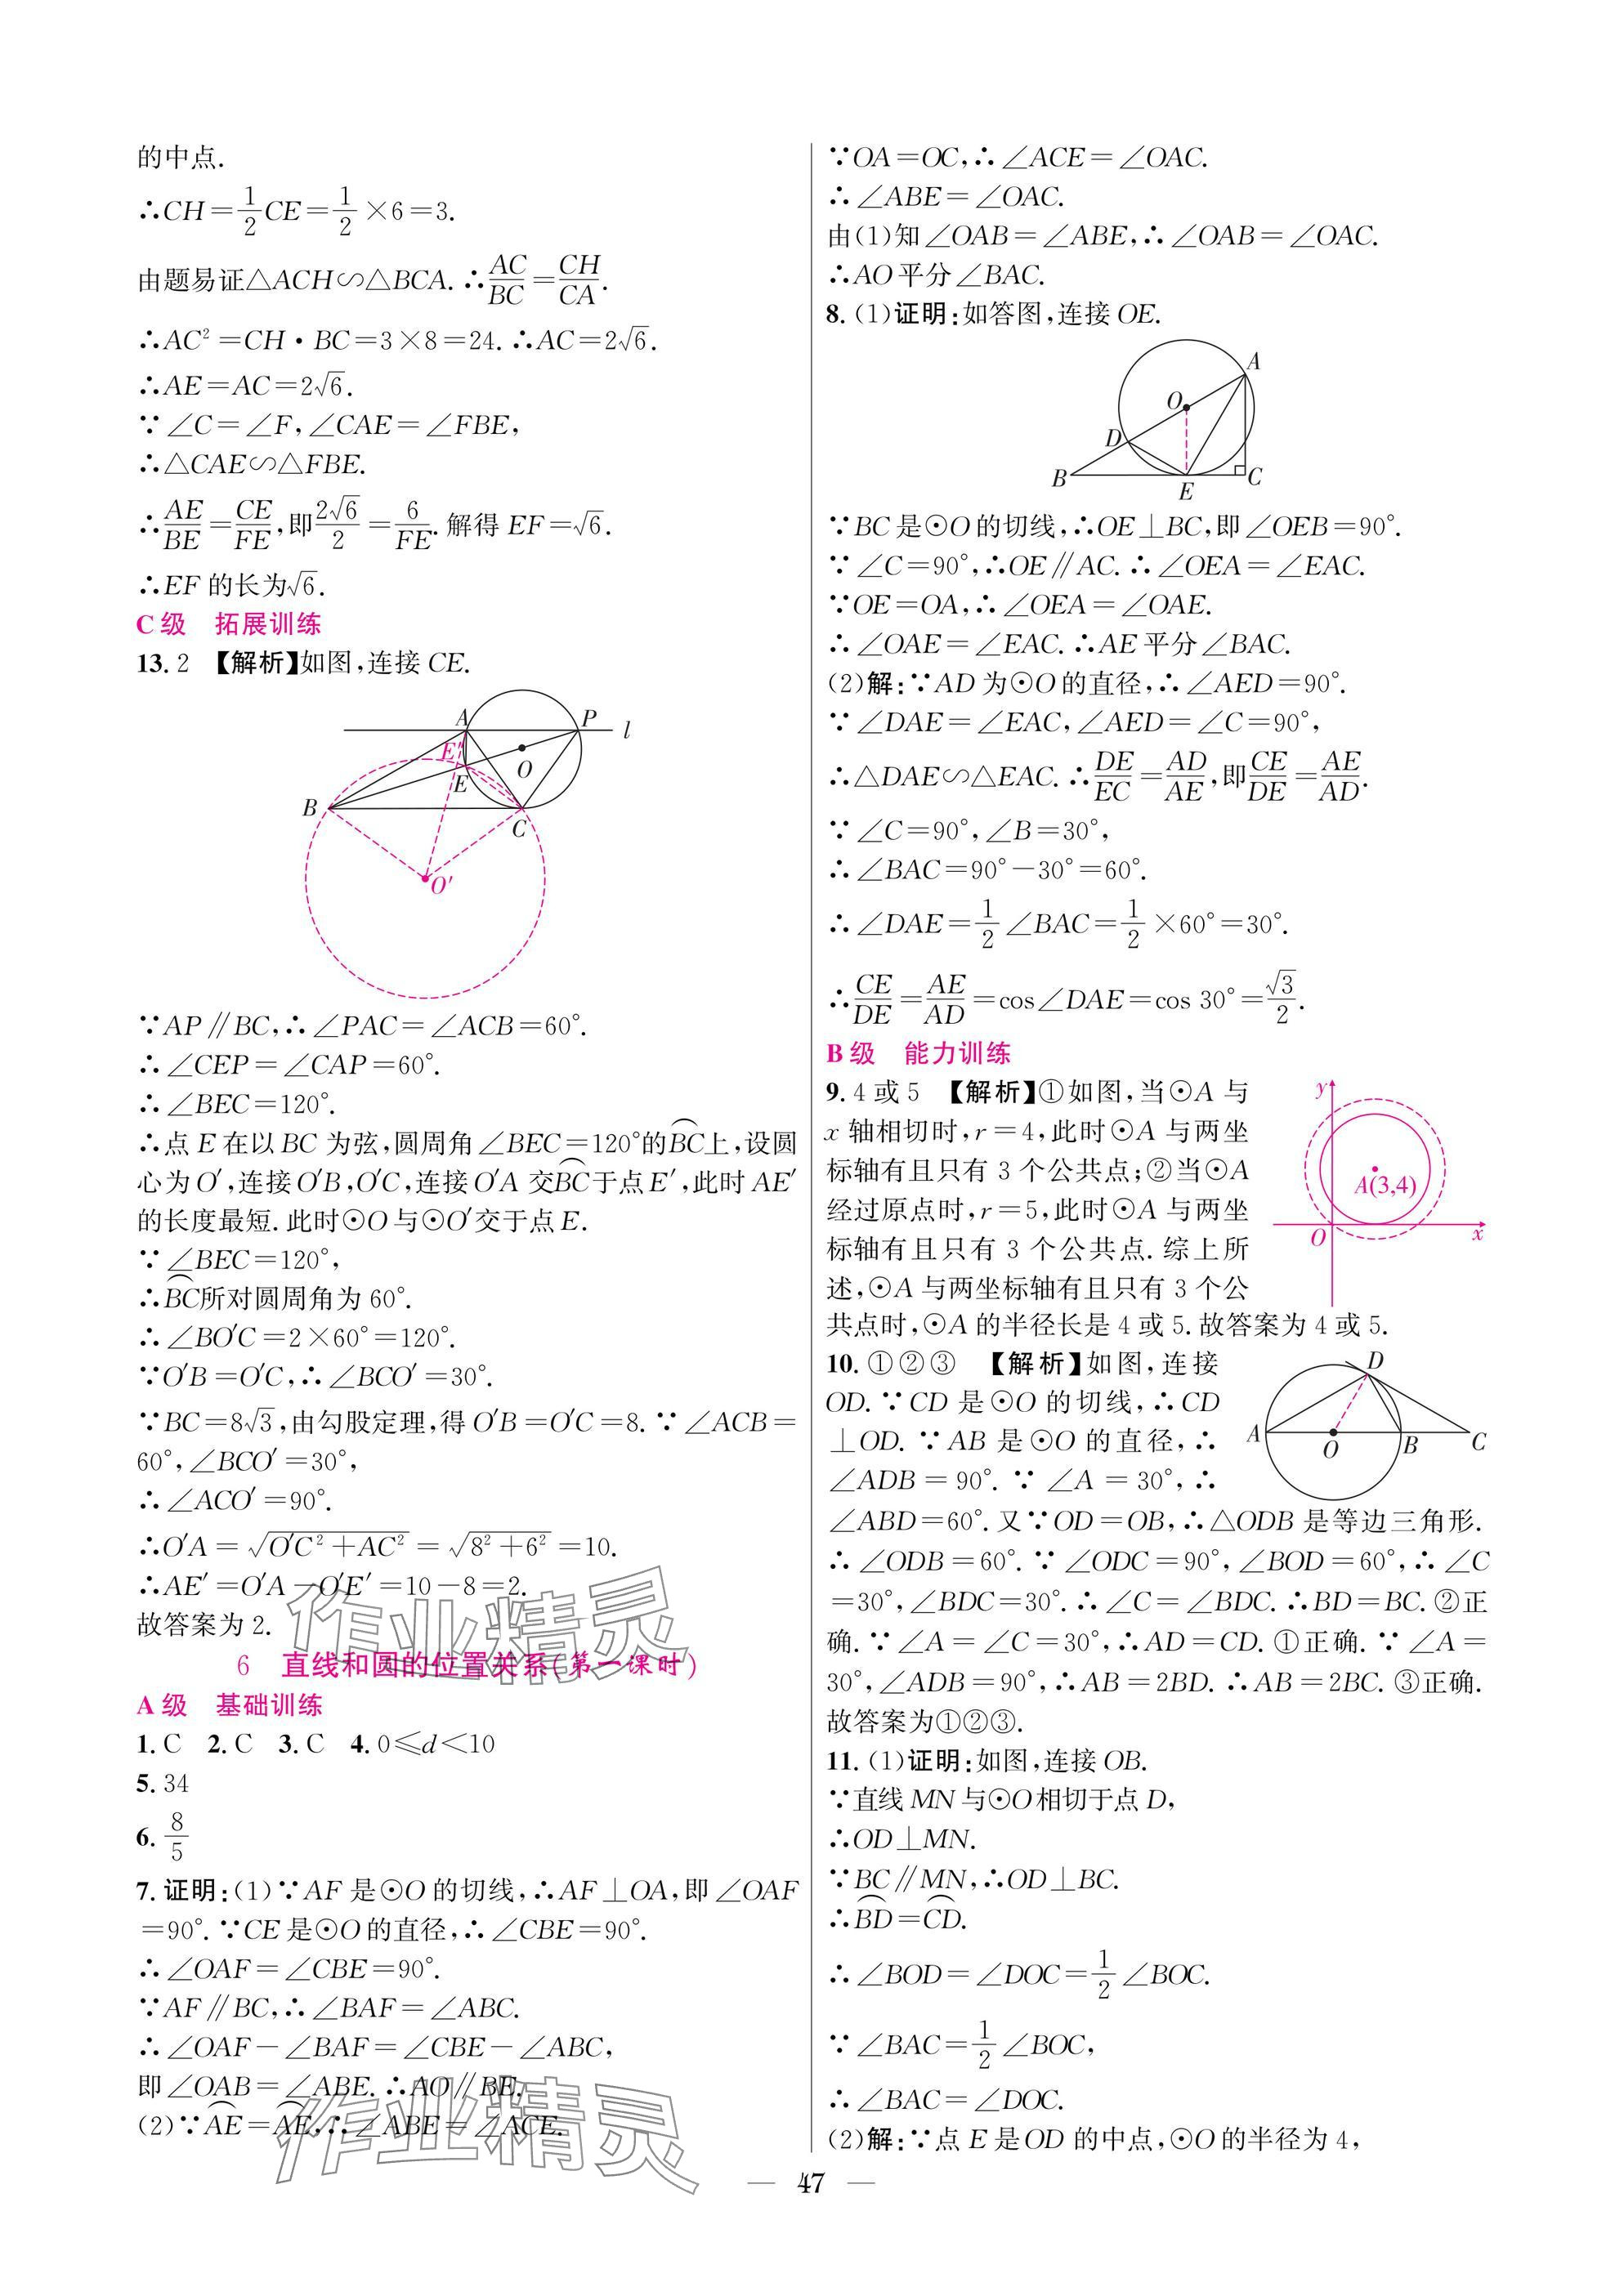 的中点.
∴CH=1/2CE=1/2×6=3.
由题易证△ACH∽△BCA.∴AC/BC=CH/CA.
∴AC²=CH·BC=3×8=24.∴AC=2√6.
∴AE=AC=2√6.
∵∠C=∠F,∠CAE=∠FBE,
∴△CAE∽△FBE.
∴AE/BE=CE/FE,即2√6/2=6/FE.解得EF=√6.
∴EF的长为√6.
C级 拓展训练
13.2 【解析】如图,连接CE.
A P l
E′ O
E
B C
O′
∵AP∥BC,∴∠PAC=∠ACB=60°.
∴∠CEP=∠CAP=60°.
∴∠BEC=120°.
∴点E在以BC为弦,圆周角∠BEC=120°的B͡C上,设圆
心为O′,连接O′B,O′C,连接O′A交B͡C于点E′,此时AE′
的长度最短.此时⊙O与⊙O′交于点E.
∵∠BEC=120°,
∴B͡C所对圆周角为60°.
∴∠BO′C=2×60°=120°.
∵O′B=O′C,∴∠BCO′=30°.
∵BC=8√3,由勾股定理,得O′B=O′C=8.∵∠ACB=
60°,∠BCO′=30°,
∴∠ACO′=90°.
∴O′A=√(O′C²+AC²)=√(8²+6²)=10.
∴AE′=O′A-O′E′=10-8=2.
故答案为2.
6 直线和圆的位置关系(第一课时)
A级 基础训练
1.C 2.C 3.C 4.0≤d<10
5.34
6.8/5
7.证明:(1)∵AF是⊙O的切线,∴AF⊥OA,即∠OAF
=90°.∵CE是⊙O的直径,∴∠CBE=90°.
∴∠OAF=∠CBE=90°.
∵AF∥BC,∴∠BAF=∠ABC.
∴∠OAF-∠BAF=∠CBE-∠ABC,
即∠OAB=∠ABE.∴AO∥BE.
(2)∵A͡E=A͡E,∴∠ABE=∠ACE.
作业精灵
作业精灵
∵OA=OC,∴∠ACE=∠OAC.
∴∠ABE=∠OAC.
由(1)知∠OAB=∠ABE,∴∠OAB=∠OAC.
∴AO平分∠BAC.
8.(1)证明:如答图,连接OE.
A
O
D
B E C
∵BC是⊙O的切线,∴OE⊥BC,即∠OEB=90°.
∵∠C=90°,∴OE∥AC.∴∠OEA=∠EAC.
∵OE=OA,∴∠OEA=∠OAE.
∴∠OAE=∠EAC.∴AE平分∠BAC.
(2)解:∵AD为⊙O的直径,∴∠AED=90°.
∵∠DAE=∠EAC,∠AED=∠C=90°,
∴△DAE∽△EAC.∴DE/EC=AD/AE,即CE/DE=AE/AD.
∵∠C=90°,∠B=30°,
∴∠BAC=90°-30°=60°.
∴∠DAE=1/2∠BAC=1/2×60°=30°.
∴CE/DE=AE/AD=cos∠DAE=cos 30°=√3/2.
B级 能力训练
9.4或5 【解析】①如图,当⊙A与
x轴相切时,r=4,此时⊙A与两坐
标轴有且只有3个公共点;②当⊙A
经过原点时,r=5,此时⊙A与两坐
标轴有且只有3个公共点.综上所
述,⊙A与两坐标轴有且只有3个公
共点时,⊙A的半径长是4或5.故答案为4或5.
y
A(3,4)
O x
10.①②③ 【解析】如图,连接
OD.∵CD是⊙O的切线,∴CD
⊥OD.∵AB是⊙O的直径,∴
∠ADB=90°.∵∠A=30°,∴
∠ABD=60°.又∵OD=OB,∴△ODB是等边三角形.
∴∠ODB=60°.∵∠ODC=90°,∠BOD=60°,∴∠C
=30°,∠BDC=30°.∴∠C=∠BDC.∴BD=BC.②正
确.∵∠A=∠C=30°,∴AD=CD.①正确.∵∠A=
30°,∠ADB=90°,∴AB=2BD.∴AB=2BC.③正确.
故答案为①②③.
D
A O B C
11.(1)证明:如图,连接OB.
∵直线MN与⊙O相切于点D,
∴OD⊥MN.
∵BC∥MN,∴OD⊥BC.
∴B͡D=C͡D.
∴∠BOD=∠DOC=1/2∠BOC.
∵∠BAC=1/2∠BOC,
∴∠BAC=∠DOC.
(2)解:∵点E是OD的中点,⊙O的半径为4,
— 47 —